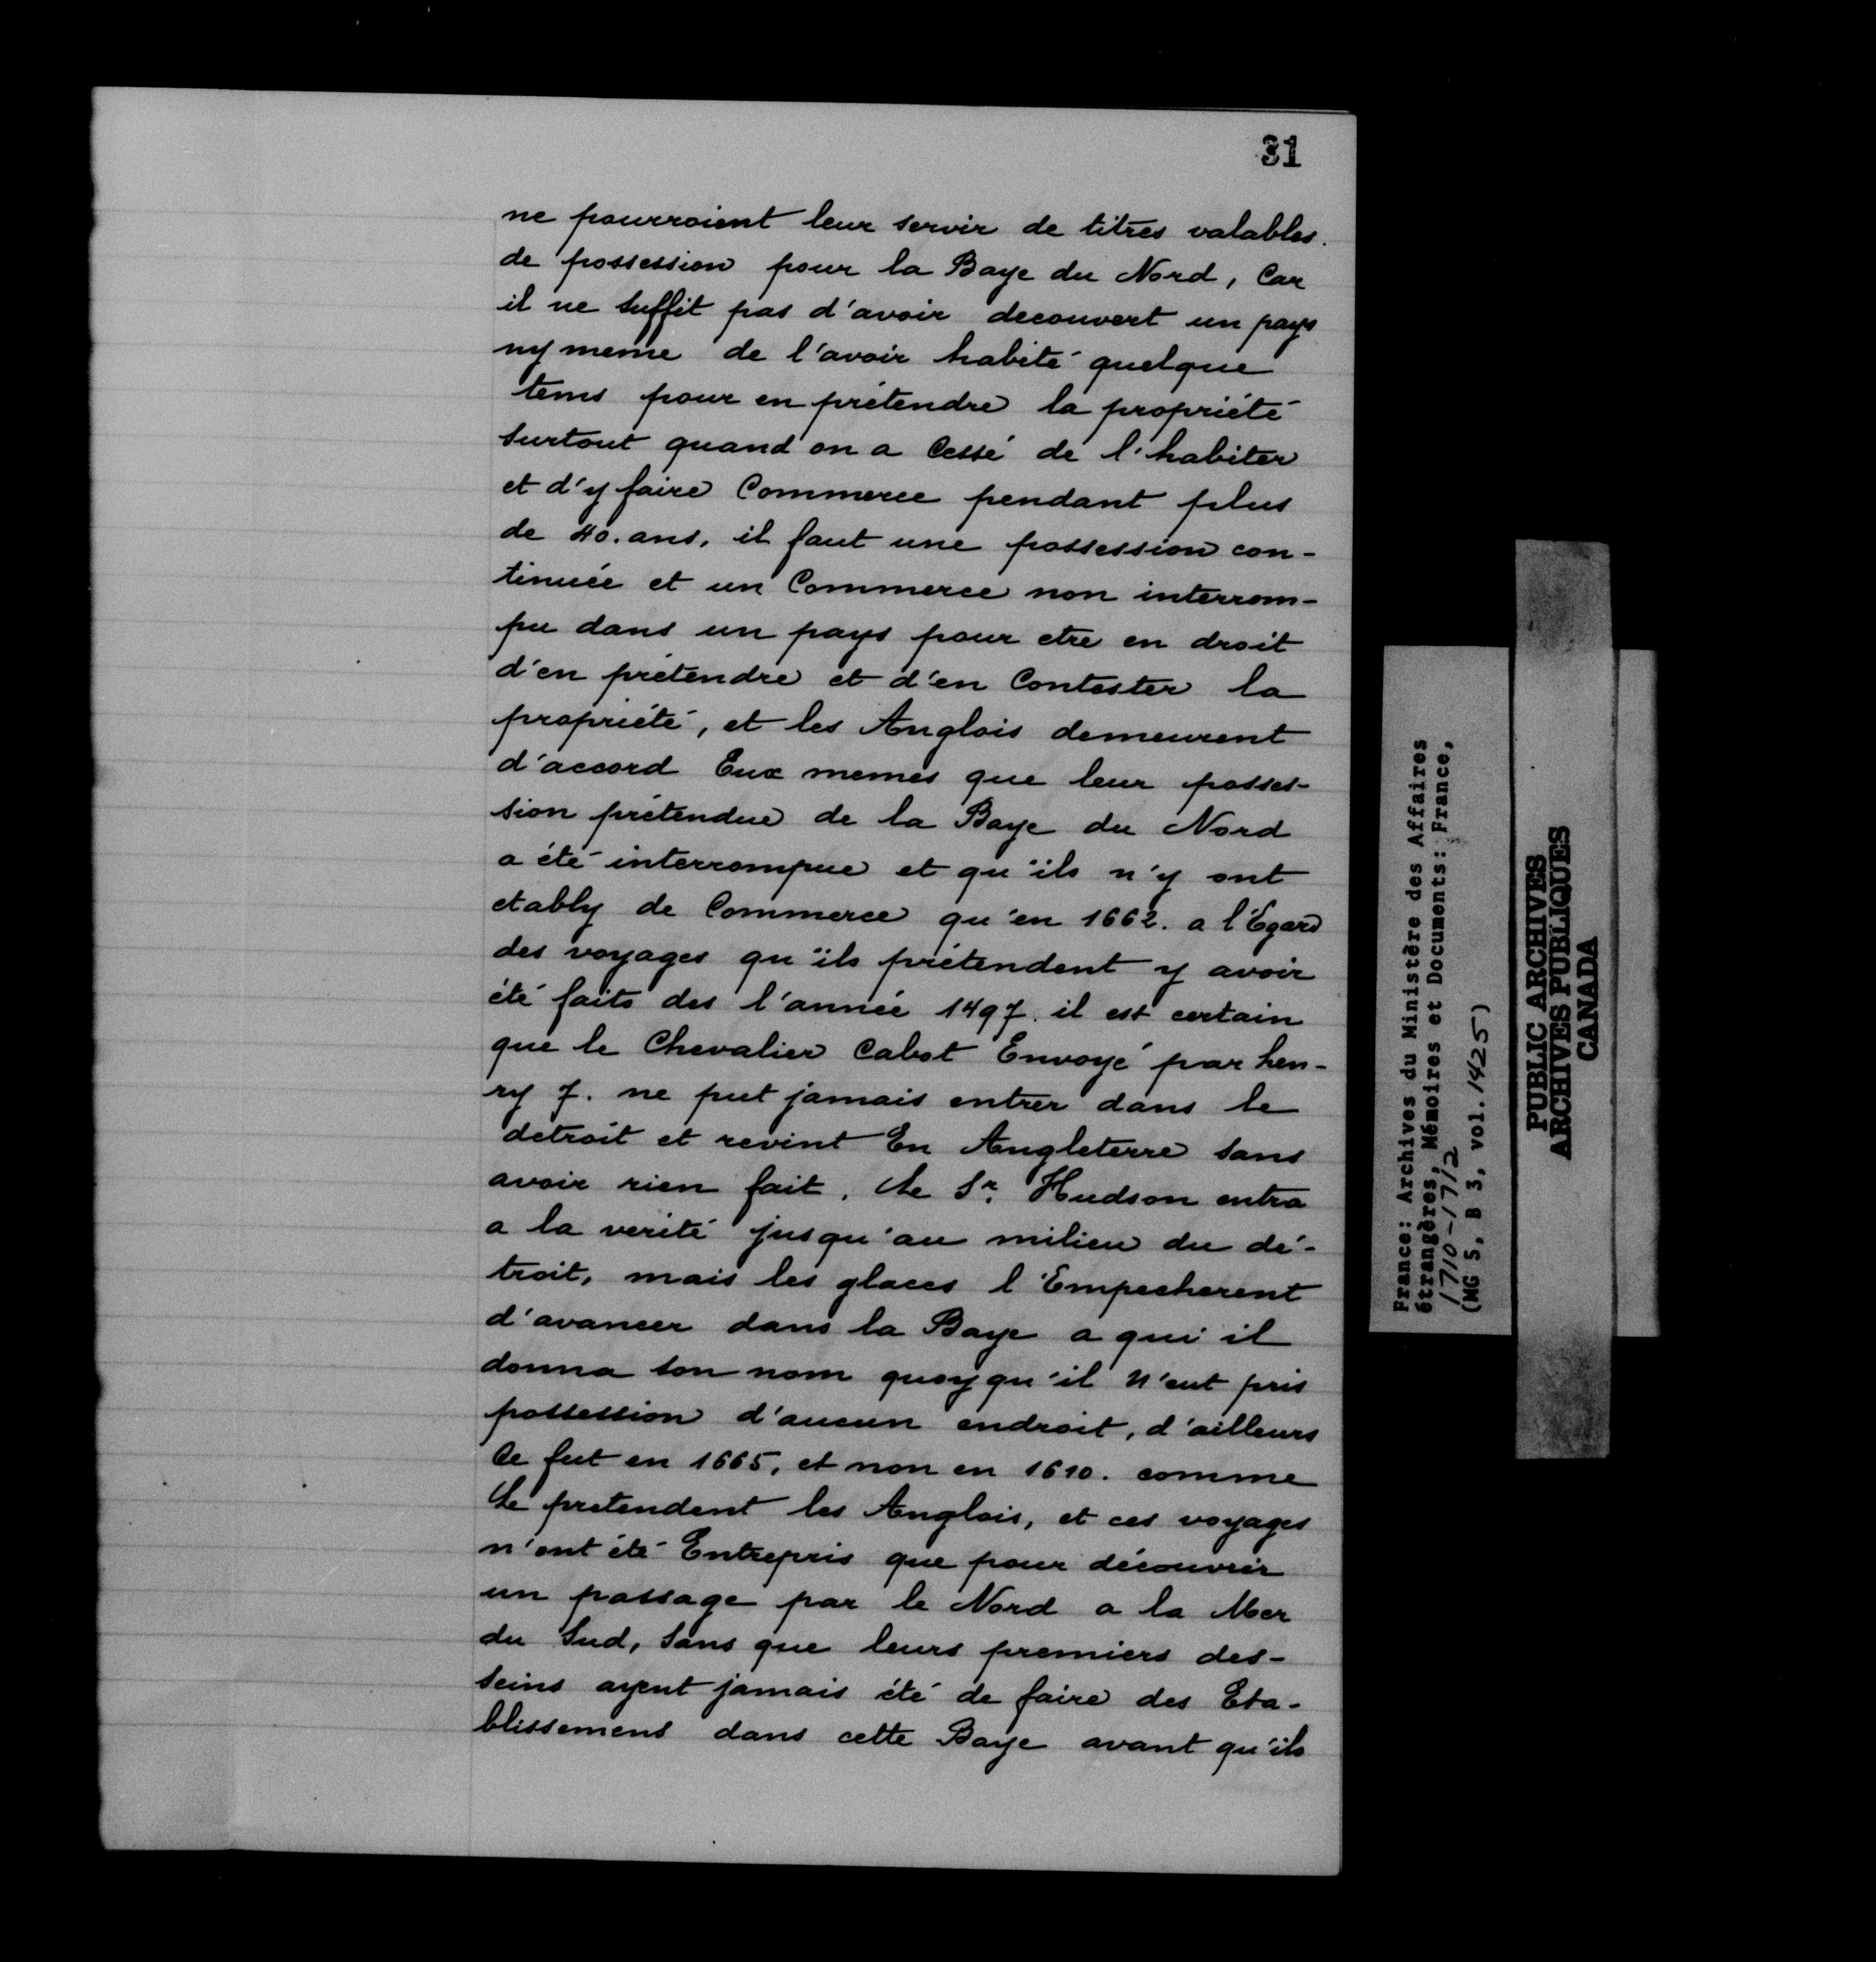 31
ne pourroient leur servir de titres valables.
de possession pour la Baye du Nord, Car
il ne suffit pas d'avoir decouvert un pays
ny meme de l'avoir habité quelque
tems pour en prétendre la propriété
surtout quand on a Cessé de l'habiter
et d'y faire Commerce pendant plus
de 40. ans, il faut une possession con-
tinuée et un Commerce non interrom-
pu dans un pays pour etre en droit
d'en prétendre et d'en Contester la
propriété, et les Anglois demeurent
d'accord Eux memes que leur posses-
sion prétendue de la Baye du Nord
a été interrompue et qu'ils n'y ont
etably de Commerce qu'en 1662. a l'Egard
des voyages qu'ils prétendent y avoir
été faits des l'année 1497. il est certain
que le Chevalier Cabot Envoyé par hen-
ry 7. ne put jamais entrer dans le
detroit et revint En Angleterre sans
avoir rien fait. Le Sr. Hudson entra
a la verité jusqu'au milieu du dé-
troit, mais les glaces l'Empecherent
d'avancer dans la Baye a qui il
donna son nom quoy qu'il N'eut pris
possession d'aucun endroit, d'ailleurs
Ce fut en 1665, et non en 1610. comme
Le pretendent les Anglois, et ces voyages
n'ont été Entrepris que pour découvrir
un passage par le Nord a la Mer
du Sud, Sans que leurs premiers des-
seins ayent jamais été de faire des Eta-
blissemens dans cette Baye avant qu'ils
France: Archives du Ministère des Affaires
étrangères, Mémoires et Documents: France,
1710-1712
(MG 5, B 3, vol. 1425)
PUBLIC ARCHIVES
ARCHIVES PUBLIQUES
CANADA